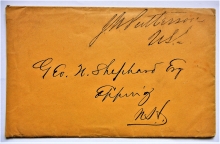 J W Patterson
U.S.S.
Geo. N. Shephard Esq
Epping
N.H.